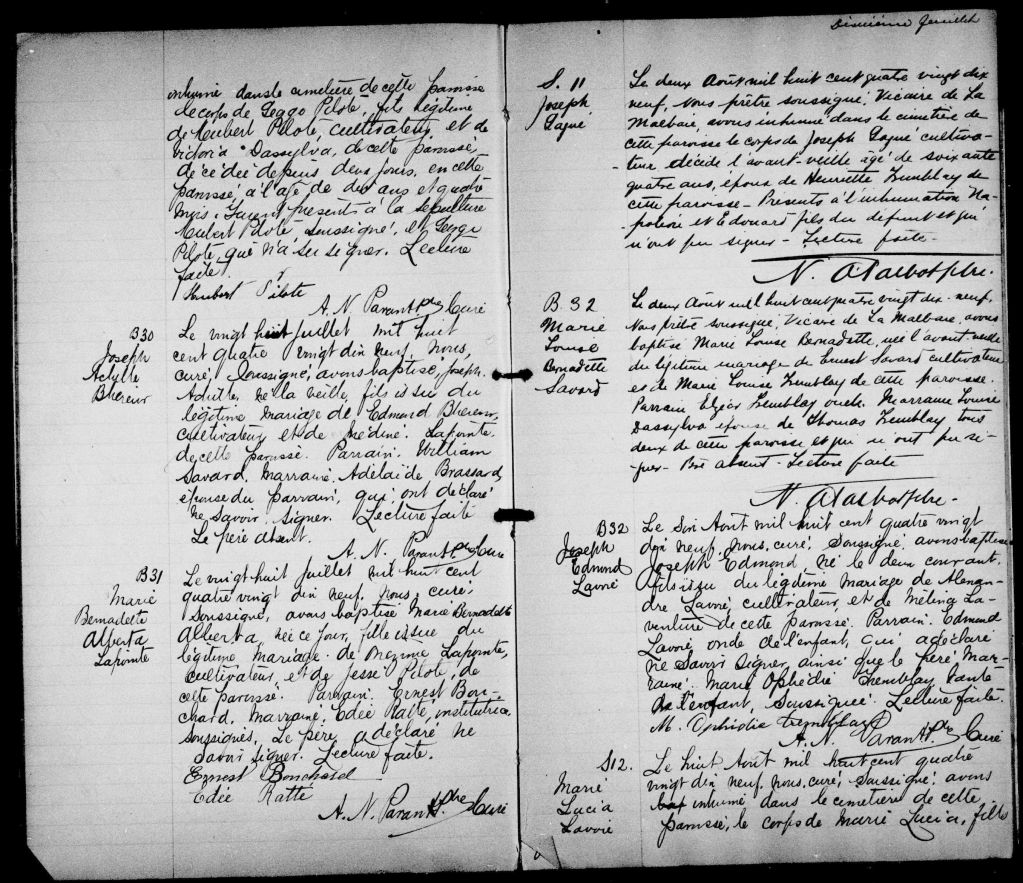 inhumé dans le cimetière de cette paroisse
le corps de Géggo Pilote, fils légitime
de Hubert Pilote, cultivateur, et de
Victoria Dassylva, de cette paroisse
décédée depuis deux jours, en cette
paroisse, à l'age de dix ans et quatre
mois. Furent présents à la sépulture
Hubert Pilote soussigné, et
Pilote, qui n'a su signer. Lecture
faite.
Hubert Pilote
A. N. Parant Ptre Curé
B30
Joseph
Achille
Bhereur
Le vingt huit Juillet mil huit
cent quatre vingt dix neuf, nous,
curé, soussigné, avons baptisé, Joseph
né la veille, fils issu du
légitime mariage de Edmond Bhereur,
cultivateur, et de Médiné Lapointe
de cette paroisse. Parrain William
Savard, Marraine, Adélaïde Brassard,
épouse du parrain, qui ont déclaré
ne savoir signer. Lecture faite
Le père absent.
A. N. Parant Ptre Curé
B31
Marie
Bernadette
Alberta
Lapointe
Le vingt huit Juillet mil huit cent
quatre vingt dix neuf, nous, curé
soussigné, avons baptisé Marie Bernadette
Alberta, née ce jour, fille issue du
légitime mariage de Lapointe,
cultivateur, et de Pilote, de
cette paroisse. Parrain Ernest Bou-
chard, Marraine, Edée Ratté, institutrice
soussignés, Le père a déclaré ne
savoir signer. Lecture faite.
Ernest Bouchard
Edée Ratté
A. N. Parant Ptre Curé
Dixième feuillet
S. 11
Joseph
Gagné
Le deux Août mil huit cent quatre vingt dix
neuf, Nous prêtre soussigné, Vicaire de La
Malbaie, avons inhumé dans le cimetière de
cette paroisse le corps de Joseph Gagné cultiva-
-teur décédé l'avant-veille âgé de soixante
quatre ans, époux de Henriette Tremblay de
cette paroisse - Présents à l'inhumation Na-
-poléon et Edouard fils du défunt et qui
n'ont pu signer - Lecture faite -
N. A Talbot ptre.
B. 32
Marie
Louise
Bernadette
Savard
Le deux Août mil huit cent quatre vingt dix-neuf,
Nous prêtre soussigné, Vicaire de La Malbaie, avons
baptisé Marie Louise Bernadette, née l'avant-veille
du légitime mariage de Ernest Savard cultivateur
et de Marie Louise Tremblay de cette paroisse.
Parrain Elzéar Tremblay oncle. Marraine Louise
Dassylva épouse de Thomas Tremblay tous
deux de cette paroisse et qui n'ont pu si-
-gner - Père absent - Lecture faite
N. A Talbot ptre -
B32
Joseph
Edmond
Lavoie
Le Six Août mil huit cent quatre vingt
dix neuf, nous, curé, soussigné, avons baptisé
Joseph Edmond né le deux courant,
fils issu du légitime mariage de Alexan-
dre Lavoie, cultivateur, et de Mélina La-
venture de cette paroisse. Parrain Edmond
Lavoie, oncle de l'enfant, qui a déclaré
ne savoir signer, ainsi que le père Mar-
raine Marie Ophédie Tremblay, tante
de l'enfant, soussignée. Lecture faite.
M. Ophidia tremblay
A. N. Parant Ptre Curé
S12.
Marie
Lucia
Lavoie
Le huit Août mil huit cent quatre
vingt dix neuf, nous, curé, soussigné, avons
inhumé dans le cimetière de cette
paroisse, le corps de Marie Lucia, fille